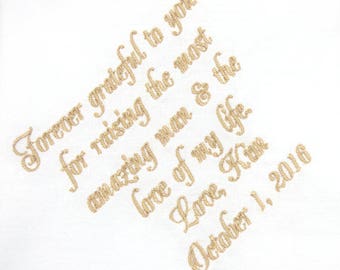 Forever grateful to you
for raising the most
amazing man & the
love of my life
Love, Kim
October 1, 2016